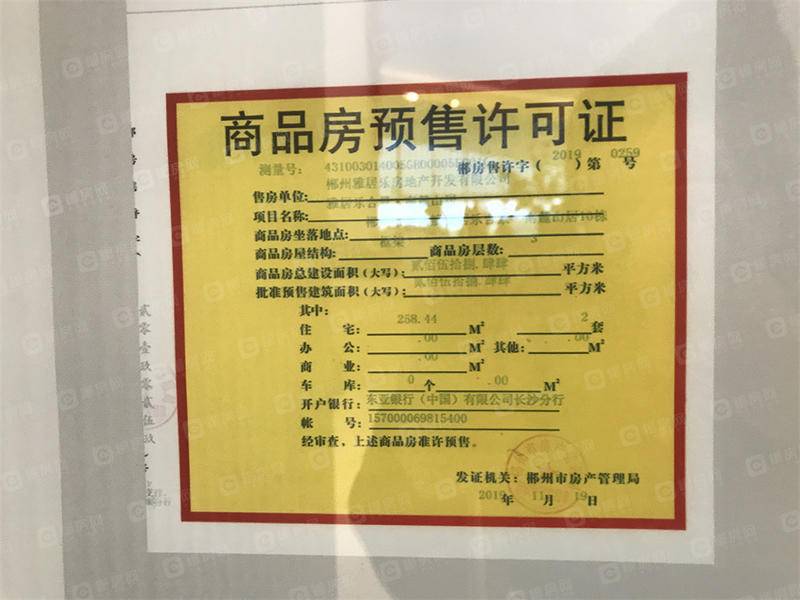 商品房预售许可证
测量号：
郴房售许字（2019）第0259号
售房单位：郴州雅居乐房地产开发有限公司
项目名称：雅居乐
商品房坐落地点：10栋
商品房屋结构：框架 商品房层数：3
商品房总建设面积（大写）：贰佰伍拾捌.肆肆平方米
批准预售建筑面积（大写）：贰佰伍拾捌.肆肆平方米
其中：
住宅：258.44 M² 2套
办公：.00 M² 其他：.00 M²
商业：.00 M²
车库：0个 .00 M²
开户银行：东亚银行（中国）有限公司长沙分行
帐号：157000069815400
经审查，上述商品房准许预售。
发证机关：郴州市房产管理局
2019年11月19日